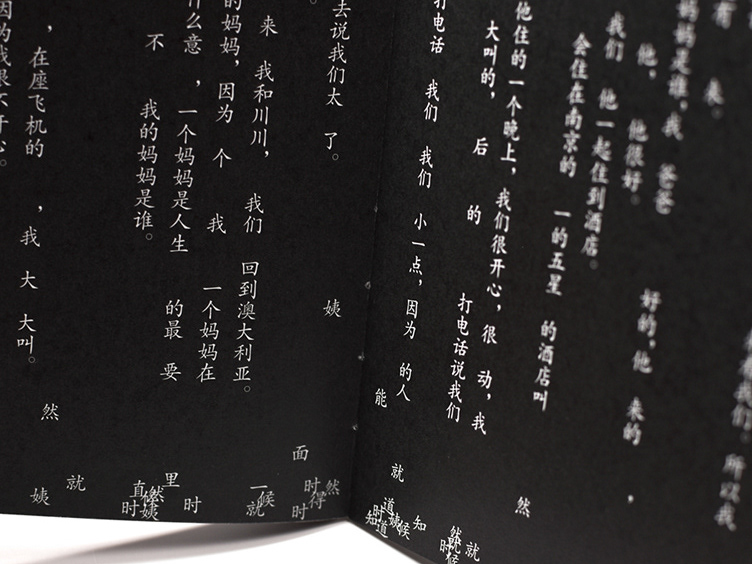 有 来。
我们,所以我
妈妈是谁,我 爸爸 好的,他 来的 ,
他, 他很好。
我们 他一起住到酒店。
会住在南京的 一的五星 的酒店叫
他住的一个晚上,我们很开心,很 动,我
大叫的, 后 的 打电话说我们
打电话 我们 我们 小一点,因为 的人
能
就
然
知
就
然
候
时
道
姨
候
知
道
去说我们太 了。
姨
来 我和川川, 我们 回到澳大利亚。
的妈妈,因为 个 我 一个妈妈在
什么意 ,一个妈妈是人生 的最 要
不 我的妈妈是谁。
,在座飞机的 ,我 大 大叫。
因为我很不开心。
面
然
时
得
时
一
候
就
时
里
直
然
时
姨
就
然
姨